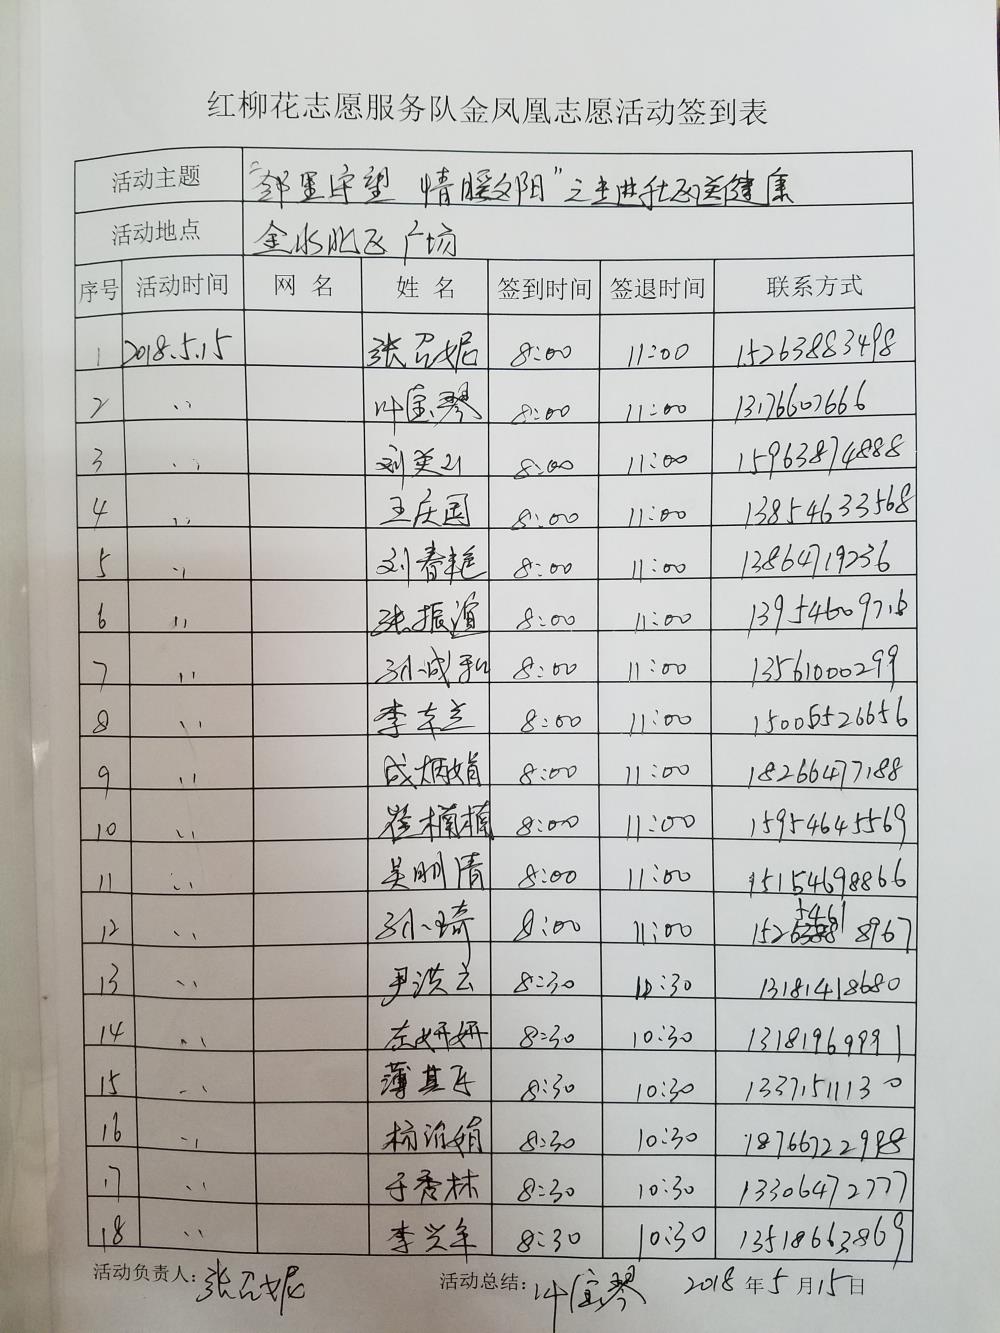 红柳花志愿服务队金凤凰志愿活动签到表
活动主题 "邻里守望 情暖夕阳"之走进社区关健康
活动地点 金水北区广场
序号 活动时间 网 名 姓 名 签到时间 签退时间 联系方式
1 2018.5.15 张召妮 8:00 11:00 15263883498
2 〃 叶宝琴 8:00 11:00 13176607666
3 〃 刘英 8:00 11:00 15963874888
4 〃 王庆国 8:00 11:00 13854633568
5 〃 刘春艳 8:00 11:00 13864719236
6 〃 张振谊 8:00 11:00 13954609716
7 〃 孙成 8:00 11:00 13561000299
8 〃 李东兰 8:00 11:00 15005526656
9 〃 成炳娟 8:00 11:00 18266477188
10 〃 崔楠楠 8:00 11:00 15954645569
11 〃 吴明清 8:00 11:00 15154698866
12 〃 孙小琦 8:00 11:00 152 5461 8967
13 〃 尹洪云 8:30 10:30 13181418680
14 〃 左妍妍 8:30 10:30 13181969991
15 〃 薄其 8:30 10:30 13371511130
16 〃 娟 8:30 10:30 18766722998
17 〃 于秀林 8:30 10:30 13306472777
18 〃 李兴年 8:30 10:30 13518663869
活动负责人：张召妮 活动总结：叶宝琴 2018 年 5 月 15 日